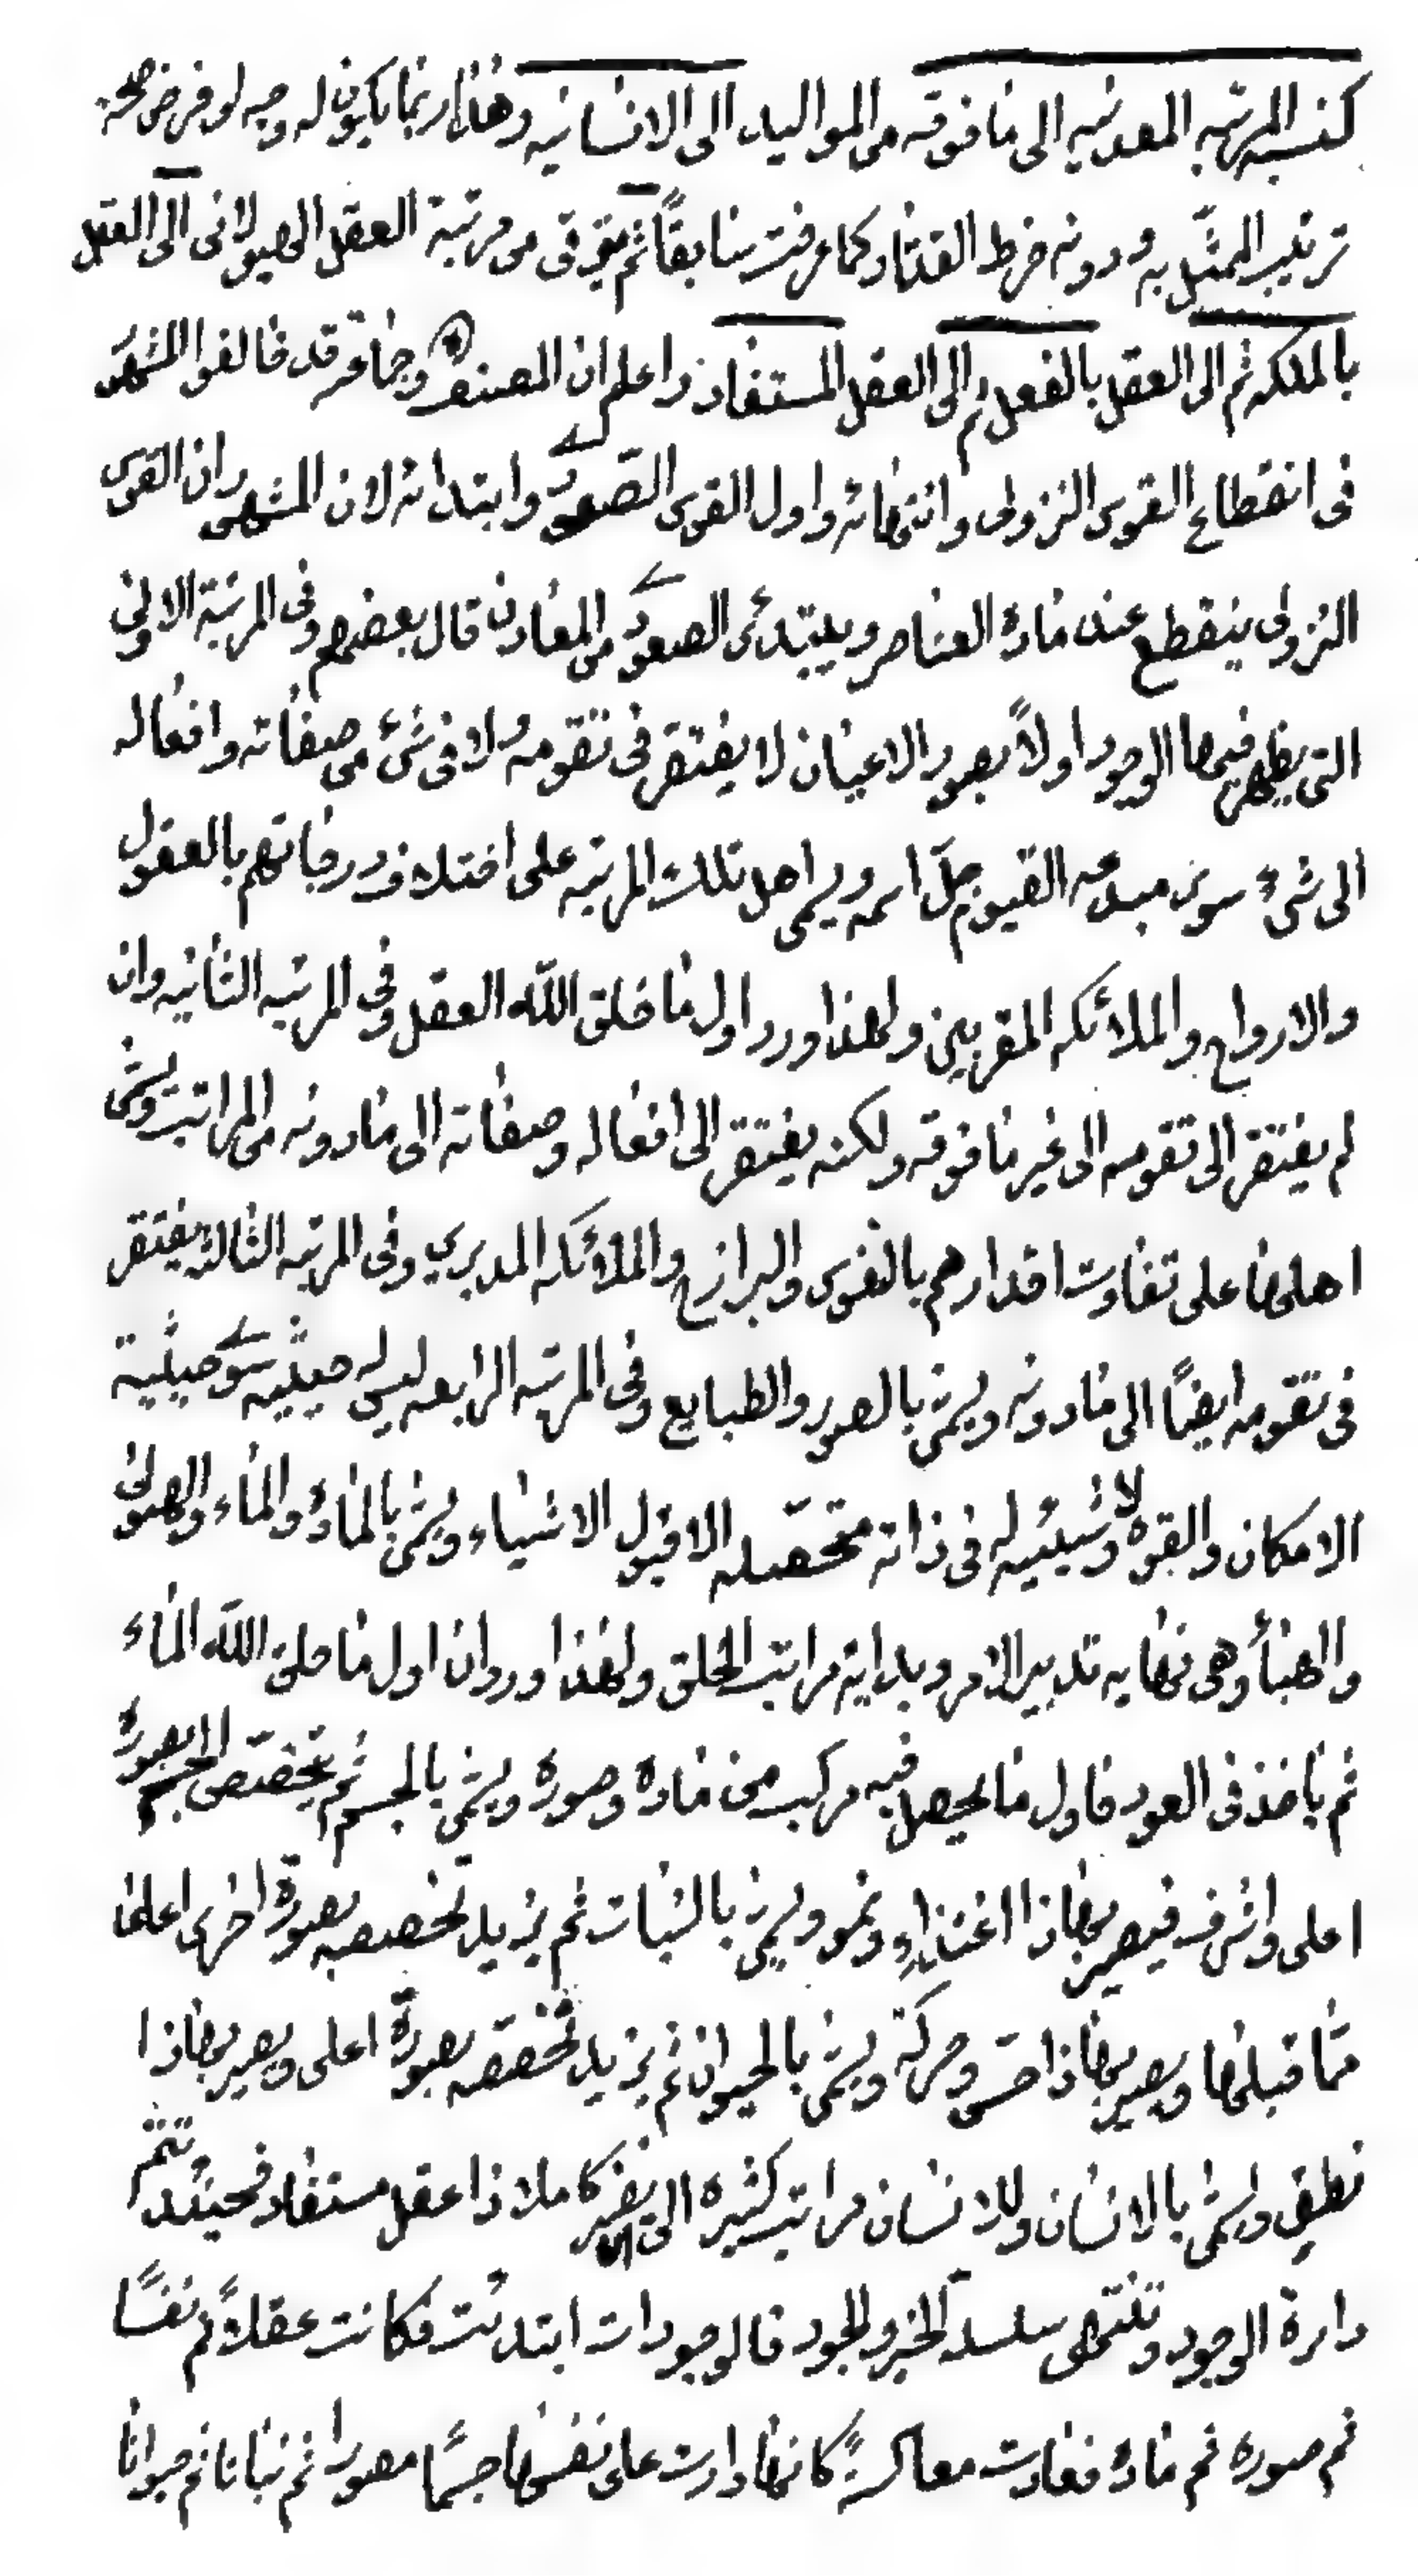 كنسبة المرتبه المعدنيه الى ما فوقه من المواليد الى الانسانيه وهذا ربما يكون له وجه لو فرض صحة
ترتيب الممثّل به ودونه خرط القتاد كما عرفت سابقاً ثم يترقى من مرتبة العقل الهيولانى الى العقل
بالملكه ثم الى العقل بالفعل ثم الى العقل المستفاد واعلم ان المصنف وجماعة قد خالفوا المشهور
فى انقطاع القوس النزولى وانتهائه واول القوس الصّعودى وابتدائه لان المشهور ان القوس
النزولى ينقطع عند مادة العناصر ويبتدئ الصعودى من المعادن قال بعضهم وفى المرتبة الاولى
التى يظهر فيها الوجود اولاً بصور الاعيان لا يفتقر فى تقومه ولا فى شئ من صفاته وافعاله
الى شئ سوى مبدعه القيوم جلّ اسمه ويسمى اهل تلك المرتبه على اختلاف درجاتهم بالعقول
والارواح والملائكه المقربين ولهذا ورد اول ما خلق اللّه العقل وفى المرتبه الثانيه وان
لم يفتقر الى تقومه الى غير ما فوقه ولكنه يفتقر الى افعاله وصفاته الى مادونه من المراتب ويسمى
اهلها على تفاوت اقدارهم بالنفوس والبرازخ والملائكه المدبرين وفى المرتبه الثالثه يفتقر
فى تقومه ايضاً الى مادونه ويسمى بالصور والطبايع وفى المرتبه الرابعه ليس له حيثيه سوى حيثية
الامكان والقوه ولا شيئيه له فى ذاته متحصّله الا قبول الاشياء ويسمى بالمادة والماء والهيولى
والهباء وهى نهايه تدبير الامر وبداية مراتب الخلق ولهذا ورد ان اول ما خلق اللّه الماء
ثم ياخذ فى العود فاول ما يحصل فيه مركب من مادة وصورة ويسمى بالجسم ثم يتخصّص الجسم بصورة
اعلى واشرف فيصير بها ذا اغتذاءٍ ونمو ويسمى بالنبات ثم يزيد تخصصه بصورة اخرى اعلى
ممّا قبلها ويصير بها ذا حسّ وحركة ويسمى بالحيوان ثم يزيد تخصصه بصورة اعلى ويصير بها ذا
نطق ويسمى بالانسان وللانسان مراتب كثيره الى ان يصير كاملا ذا عقل مستفاد فحينئذ تتم
دارة الوجود وتنتهى سلسلة الخير والجود فالوجودات ابتدئت فكانت عقلاً ثم نفساً
ثم صورة ثم مادة فعادت معاكسةً كانها دارت على نفسها جسمًا مصورا ثم نباتا ثم حيوانا